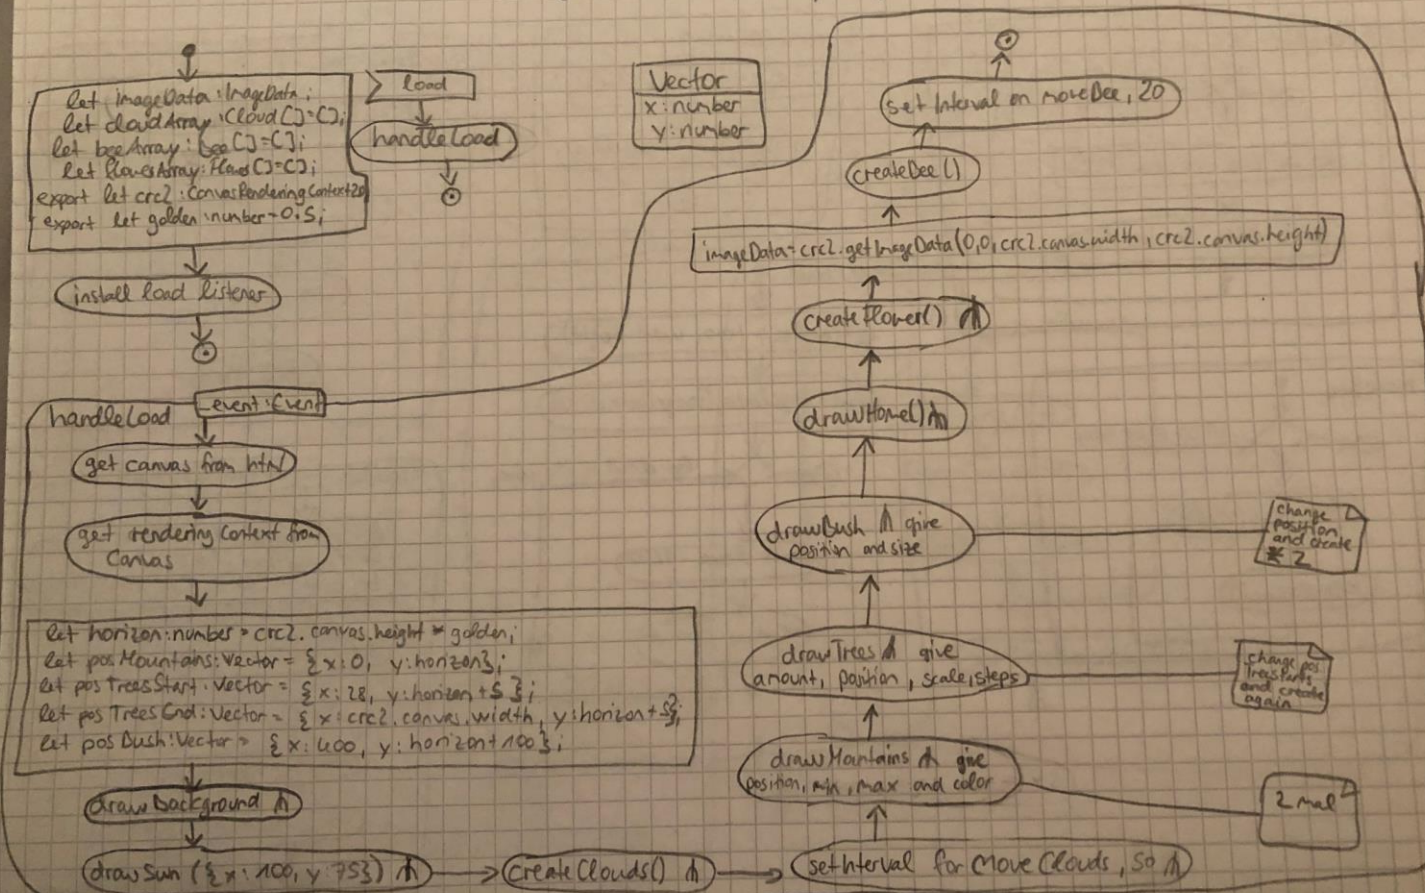 let imageData: ImageData;
let cloudArray: Cloud[]=[];
let beeArray: Bee[]=[];
let flowerArray: Flower[]=[];
export let crc2: CanvasRenderingContext2D
export let golden: number=0.5;
install load listener
load
handleLoad
Vector
x: number
y: number
handleLoad
_event: Event
get canvas from html
get rendering Context from
Canvas
let horizon: number = crc2.canvas.height * golden;
let posMountains: Vector = {x:0, y:horizon};
let posTreesStart: Vector = {x:28, y:horizon+5};
let posTreesEnd: Vector = {x:crc2.canvas.width, y:horizon+5};
let posBush: Vector = {x:400, y:horizon+100};
drawBackground
drawSun ({x:100, y:75})
createClouds()
setInterval for moveClouds, 50
drawMountains give
position, min, max and color
2 mal
drawTrees give
amount, position, scale, steps
change pos
and create
again
drawBush give
position and size
change
position
and create
* 2
drawHome()
createFlower()
imageData=crc2.getImageData(0,0,crc2.canvas.width, crc2.canvas.height)
createBee()
set Interval on moveBee, 20